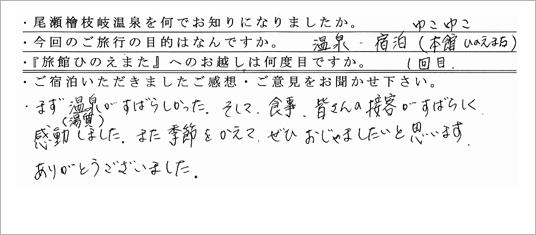 ・尾瀬檜枝岐温泉を何でお知りになりましたか。 ゆこゆこ
・今回のご旅行の目的はなんですか。 温泉・宿泊(本館ひのえまた)
・『旅館ひのえまた』へのお越しは何度目ですか。 1回目.
・ご宿泊いただきましたご感想・ご意見をお聞かせ下さい。
・まず温泉がすばらしかった。そして、食事、皆さんの接客がすばらしく
(湯質)
感動しました。また季節をかえて、ぜひおじゃましたいと思います.
ありがとうございました。